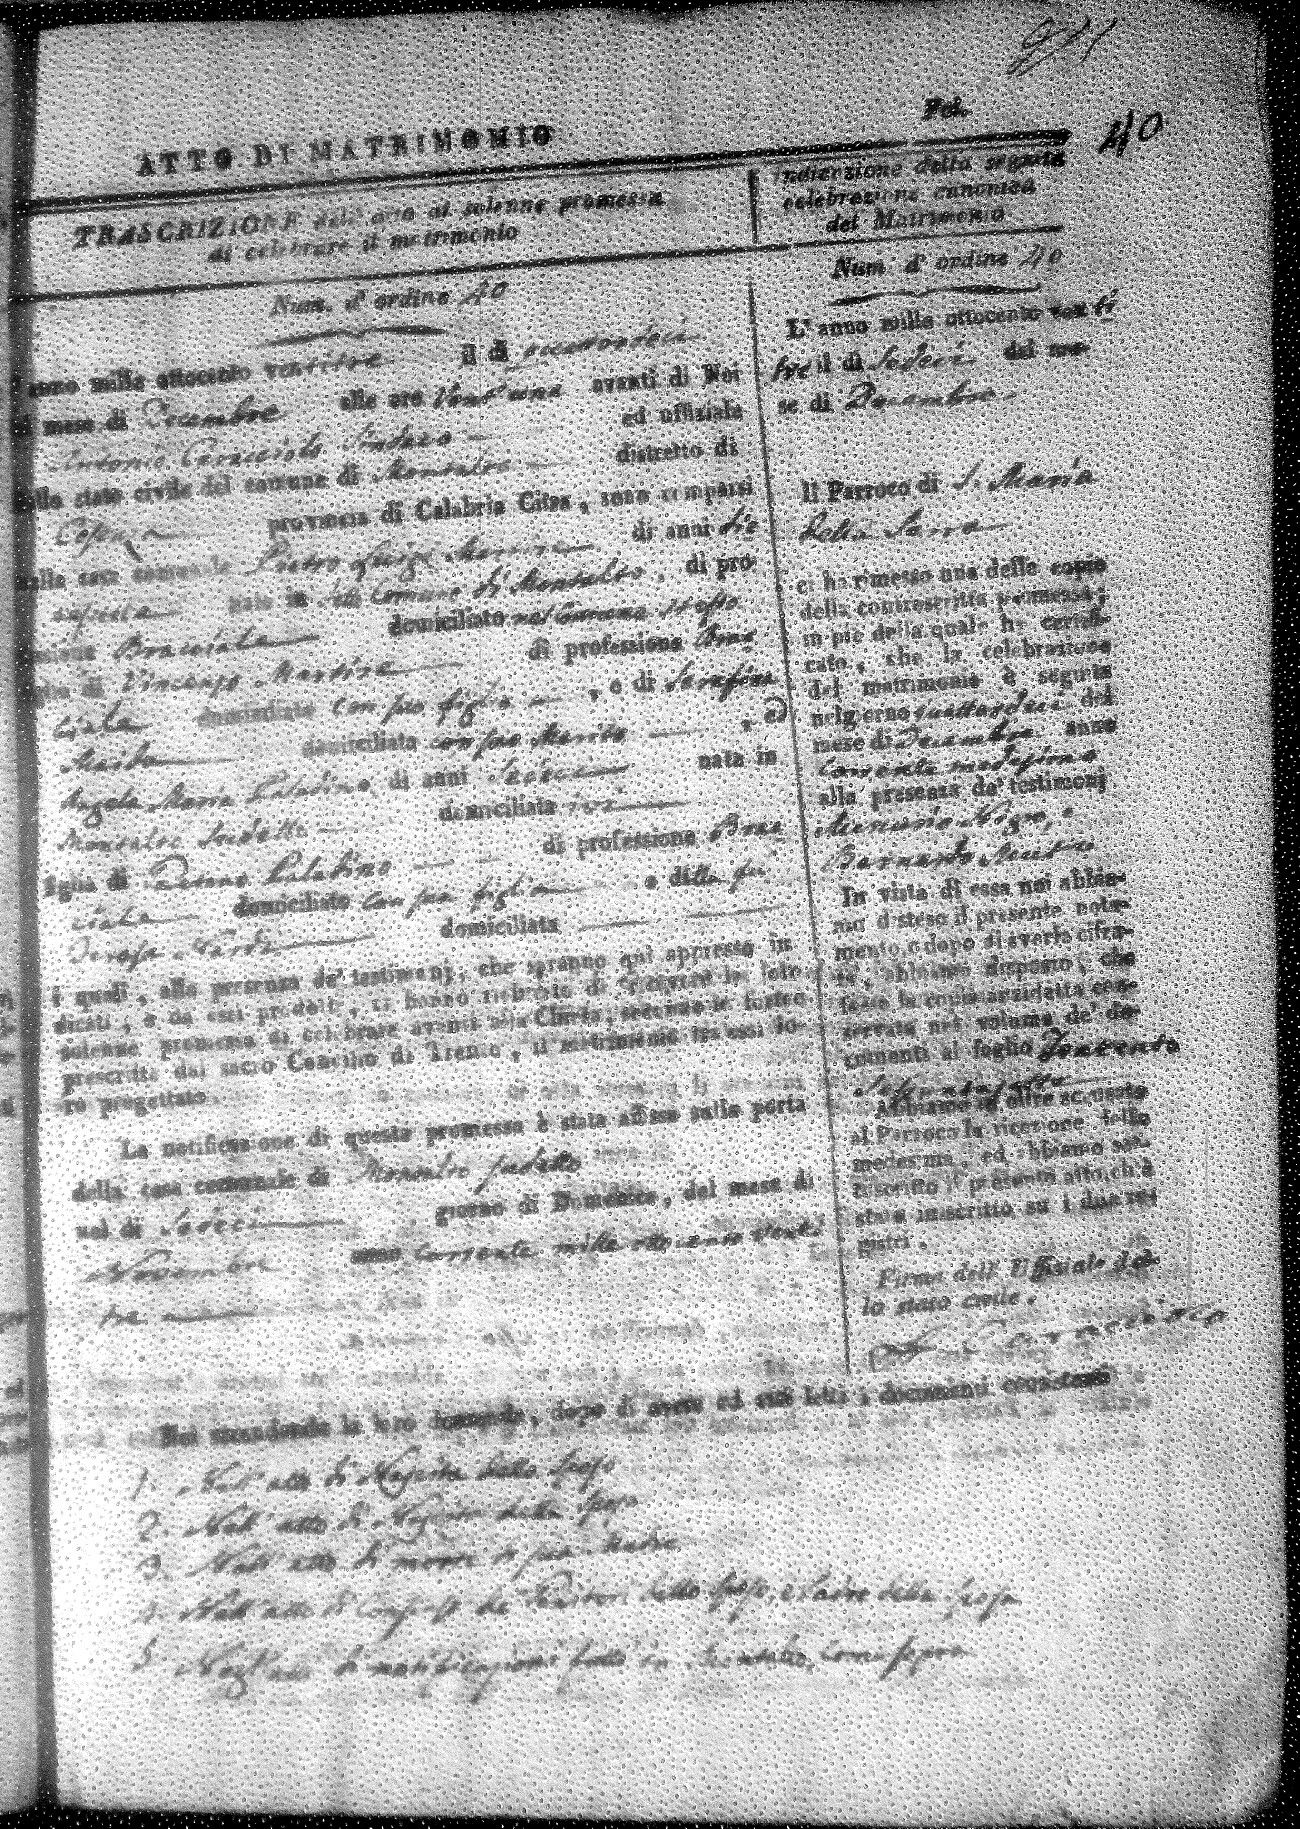 Fol.
40
ATTO DI MATRIMONIO
TRASCRIZIONE dell' atto di solenne promessa
di celebrare il matrimonio
Num. d' ordine 40
anno mille ottocento ventitre il dì quattordeci
mese di Decembre alle ore vent'una avanti di Noi
Antonio Caracciolo Sindaco ed uffiziale
dello stato civile del comune di Montalto distretto di
Cosenza provincia di Calabria Citra, sono comparsi
nella casa comunale Pietro Luigi Martire di anni die
nato in Comune di Montalto, di pro-
Bracciale domiciliato nel Comune stesso
di Vincenzo Martire di professione Brac
ciale domiciliato con suo figlio, e di Serafina
domiciliata con suo Marito, ed
Angela Maria Palatino di anni Sedeci nata in
Montalto sudetto domiciliata ivi
figlia di Palatino di professione Brac
ciale domiciliato con sua figlia e della fu
Teresa domiciliata
i quali, alla presenza de' testimonj, che saranno qui appresso in
dicati, e da essi prodotti, ci hanno richiesto di ricevere la loro
solenne promessa di celebrare avanti alla Chiesa, secondo le forme
prescritte dal sacro Concilio di Trento, il matrimonio tra essi lo-
ro progettato.
La notificazione di questa promessa è stata affissa sulla porta
della casa comunale di Montalto sudetto
nel dì Sedeci giorno di Domenica, del mese di
Novembre anno corrente mille ottocento venti
tre
Indicazione della seguita
celebrazione canonica
del Matrimonio
Num d' ordine 40
L' anno mille ottocento venti
tre il dì Sedeci del me-
se di Decembre
Il Parroco di S. Maria
Della Serra
ci ha rimesso una delle copie
della controscritta promessa,
in piè della quale ha certifi-
cato, che la celebrazione
del matrimonio è seguita
nel giorno quattordeci del
mese di Decembre anno
corrente medesimo
alla presenza de' testimonj
Nigro, e
Bernardo
In vista di essa noi abbia-
mo disteso il presente nota-
mento, e dopo di averlo cifra-
to, abbiamo disposto, che
fosse la copia anzidetta con-
servata nel volume de' do-
cumenti al foglio Trecento
Abbiamo in oltre accusato
al Parroco la ricezione della
medesima, ed abbiamo sot-
toscritto il presente atto, ch' è
stato inscritto su i due re-
gistri.
Firma dell' Uffiziale del-
lo stato civile.
Caracciolo
Noi secondando la loro domanda, dopo di avere ad essi letti i documenti consistenti
1. Nell' atto di Nascita dello sposo
2. Nell' atto di Nascita della sposa
3. Nell' atto di morte di sua Madre
4. Nell' atto di Consenso de' Genitori dello sposo, e Padre della sposa
5. Negl' atti di notificazioni fatte in Montalto, come sopra